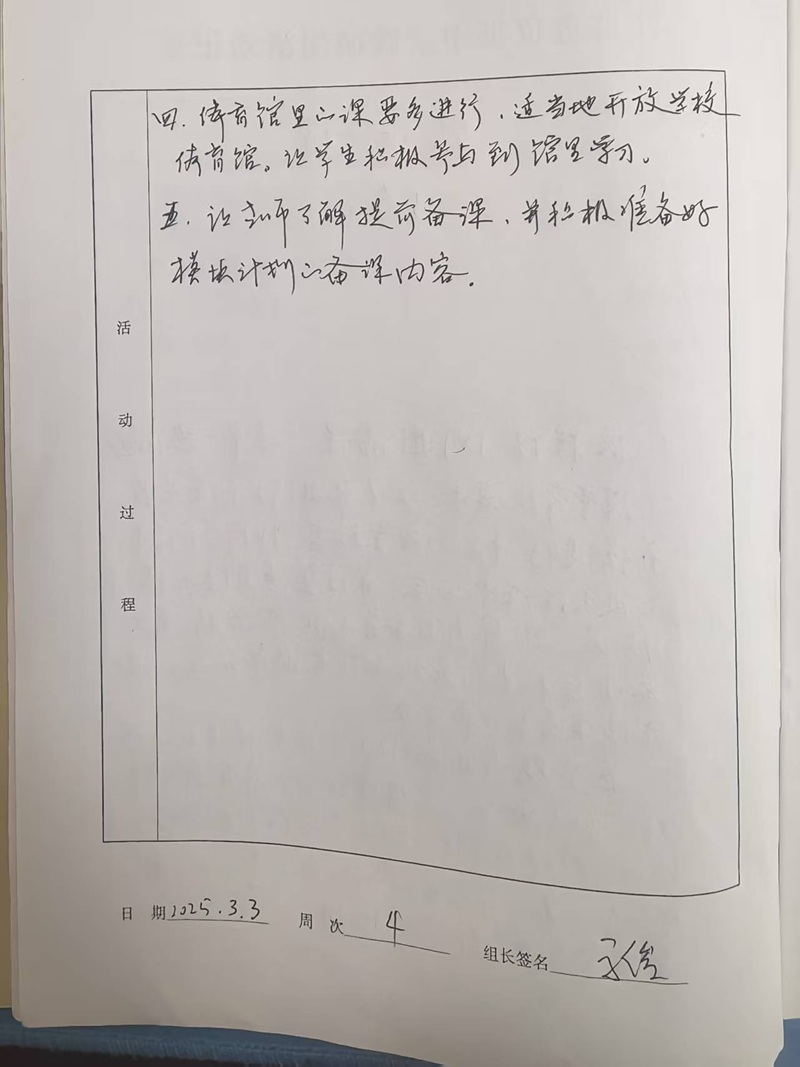 四.体育馆里的课要多进行,适当地开放学校
体育馆。让学生积极参与到馆里学习。
五.让老师了解提前备课,并积极准备好
模块计划的备课内容.
活
动
过
程
日 期 2025.3.3 周 次 4
组长签名